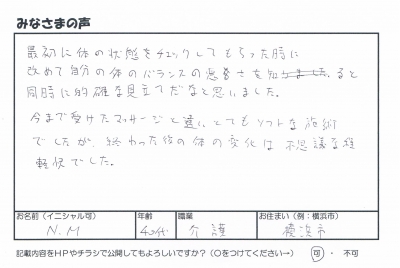 みなさまの声
最初に体の状態をチェックしてもらった時に
改めて自分の体のバランスの悪さを知りました。ると
同時に的確な見立てだなと思いました。
今まで受けたマッサージと違い、とてもソフトな施術
でしたが、終わった後の体の変化は不思議な体
験でした。
お名前（イニシャル可） 年齢 職業 お住まい（例：横浜市）
N.M 40代 介護 横浜市
記載内容をHPやチラシで公開してもよろしいですか？（○をつけてください→） 可 ・ 不可